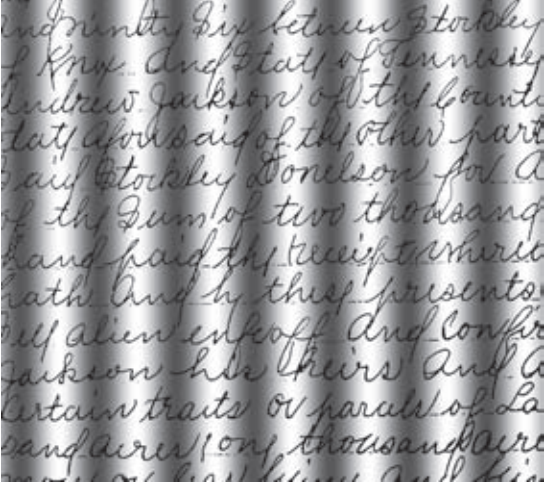 and ninety Six between Stockley
of Knox and State of Tennesse
Andrew Jackson of the Count
tate aforesaid of the other part
aid Stockley Donelson for a
of the Sum of two thousand
hand paid the receipt where
hath and by these presents
ell alien enfeoff and Confir
Jackson his heirs and a
certain traits or parcels of La
sand acres one thousand acre